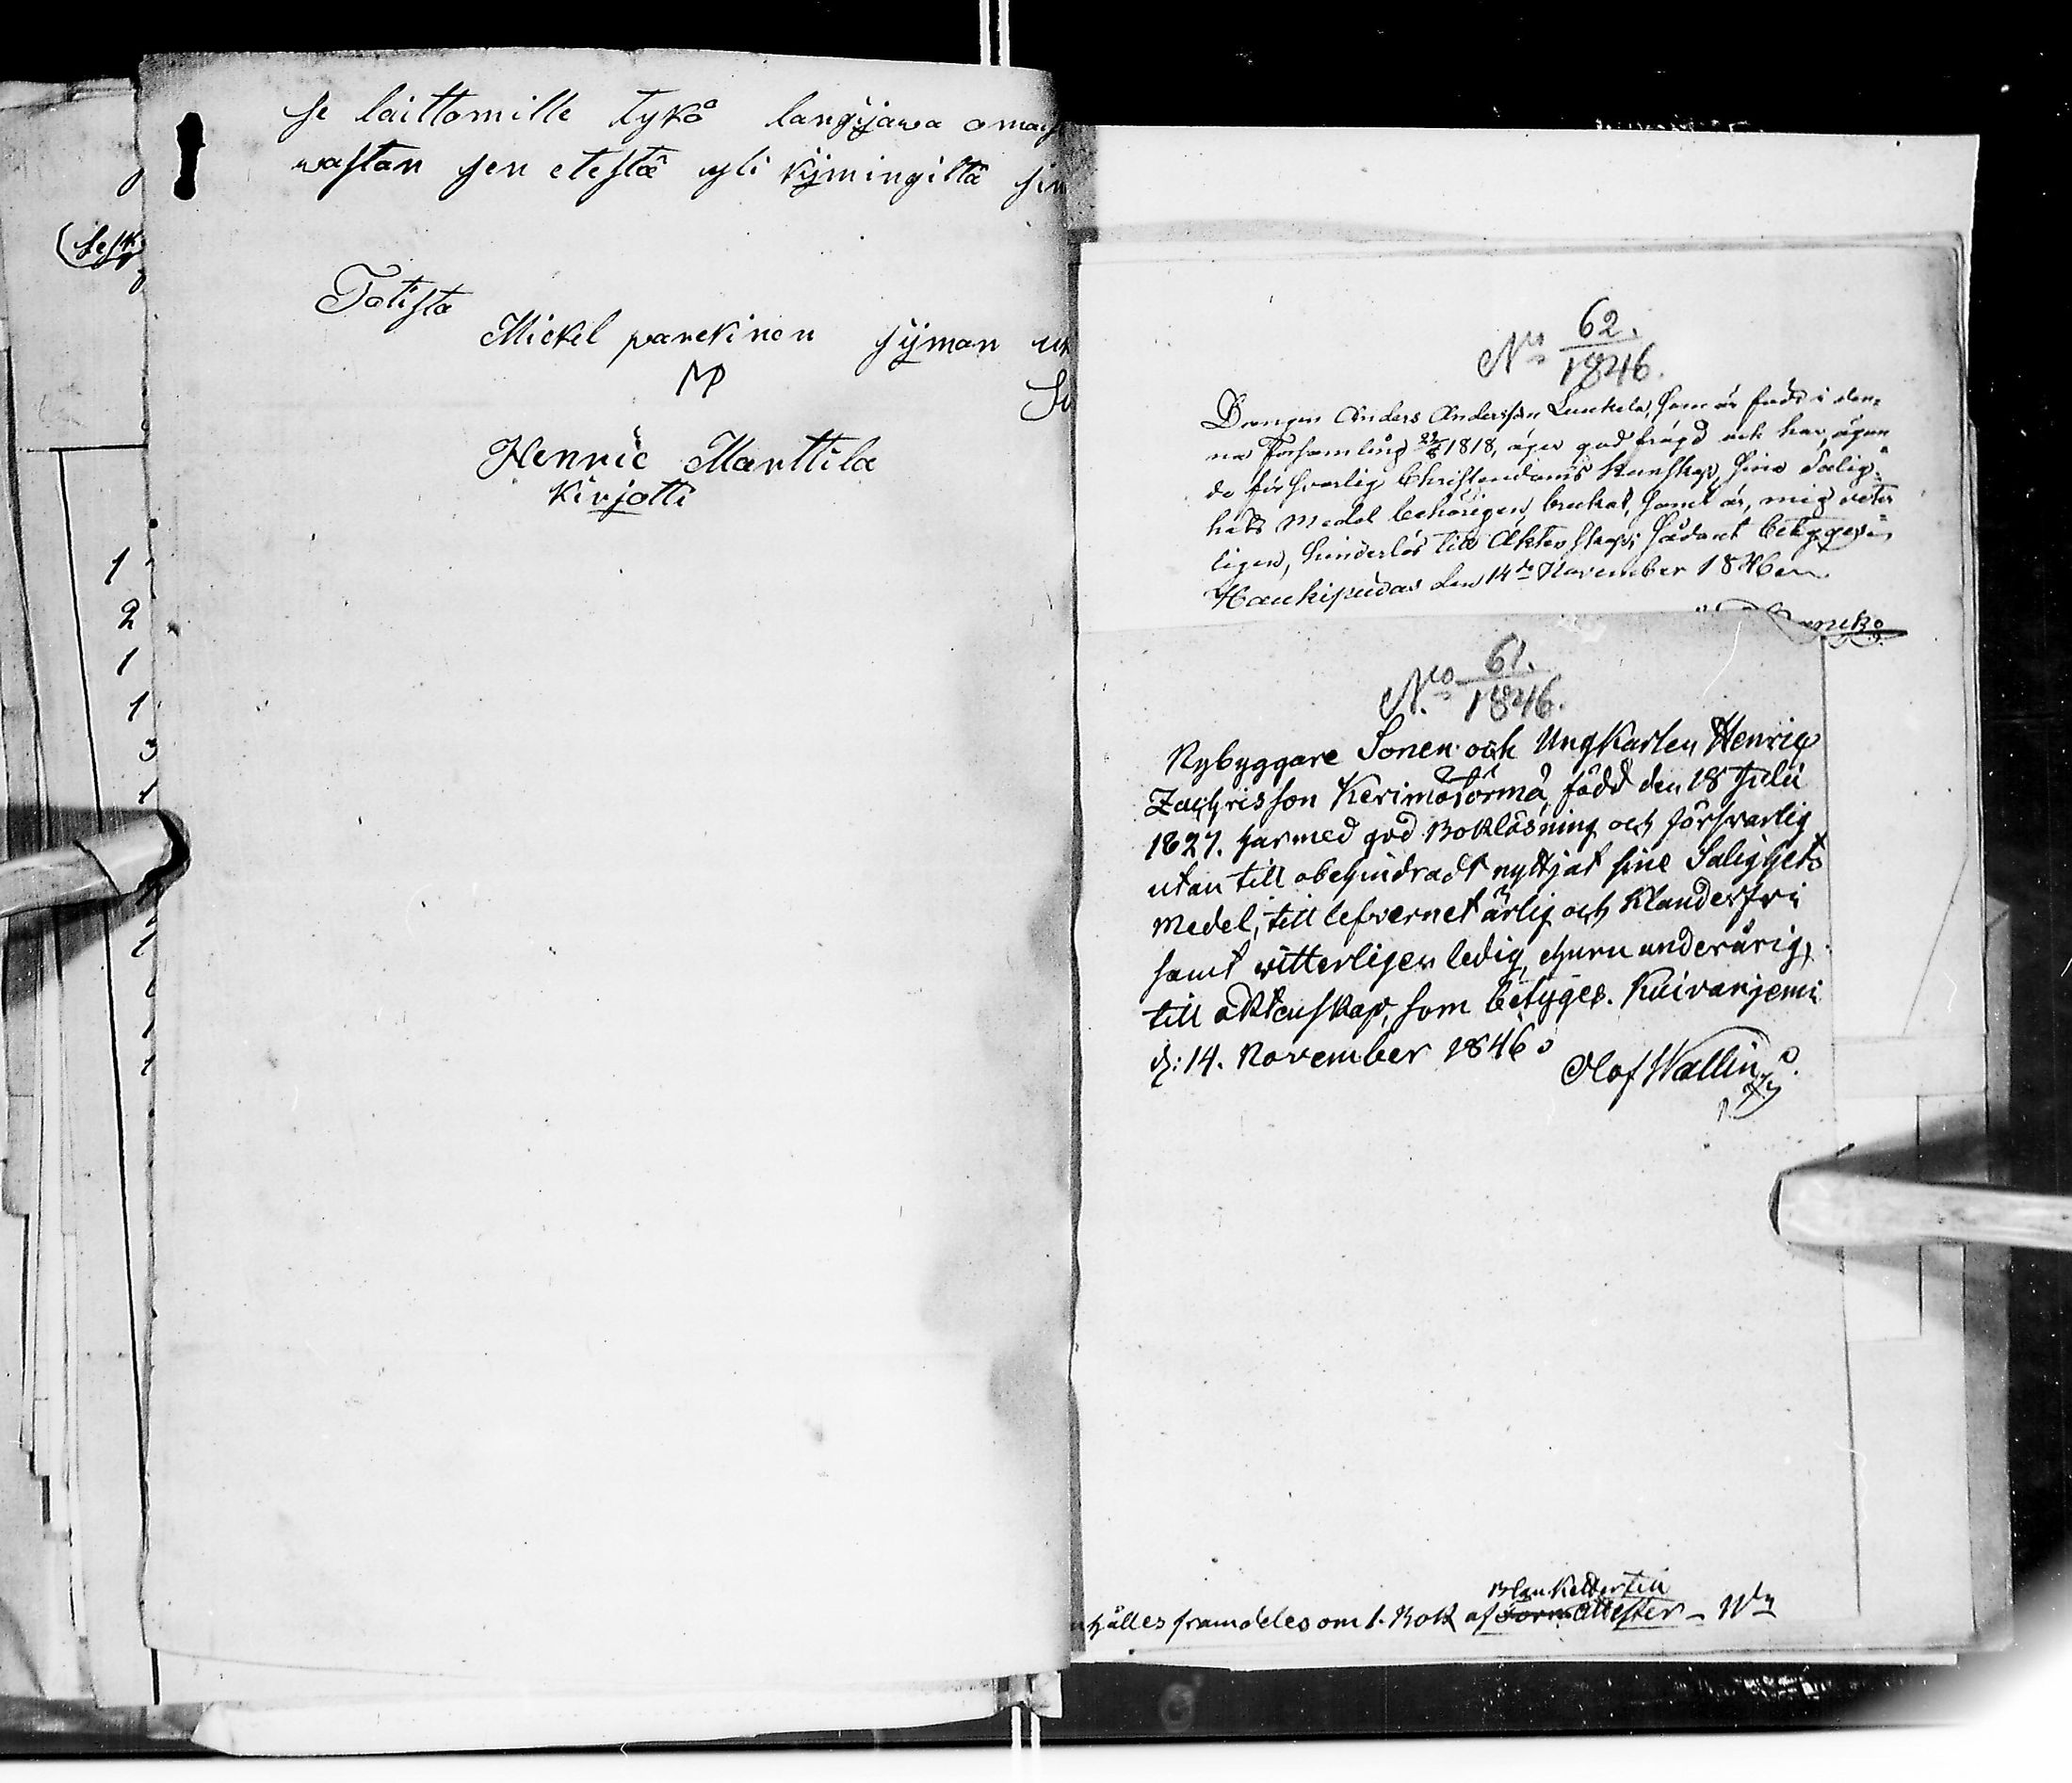 se laittomille tykö langyawa omais
wastan sen etestä yli kymingiltä sin
Totista
Mickel parckinen syman
MP
Henric Marttila
Kirjotti
1
2
1
1
3
1
1
1
1
No 62.
1846.
Drengen Anders Andersson Lunkela, som är född i den-
na Församling 23/8 1818, äger god frägd och har, ägan
de försvarlig Christendoms Kunskap, sina Salig-
hets Medel behörigen brukat, samt är, mig veter
ligen, hinderlös till Äktenskap; Sådant betygges
Haukipudas den 14de November 1846
No 61.
1846.
Nybyggare Sonen och UngKarlen Henric
Zachrisson Kerimätörmä, född den 18 Julii
1827. har med god Bokläsning och försvarlig
utan till obehindradt nyttjat sine Salighets
Medel, till lefvernet ärlig och Klanderfri
samt vitterligen ledig, ehuru underårig,
till äktenskap, som betyges. Kuivaniemi
d: 14. November 1846.
Olof Wallin
Blanketter till
hålles framdeles om 1. Bok af Form attester